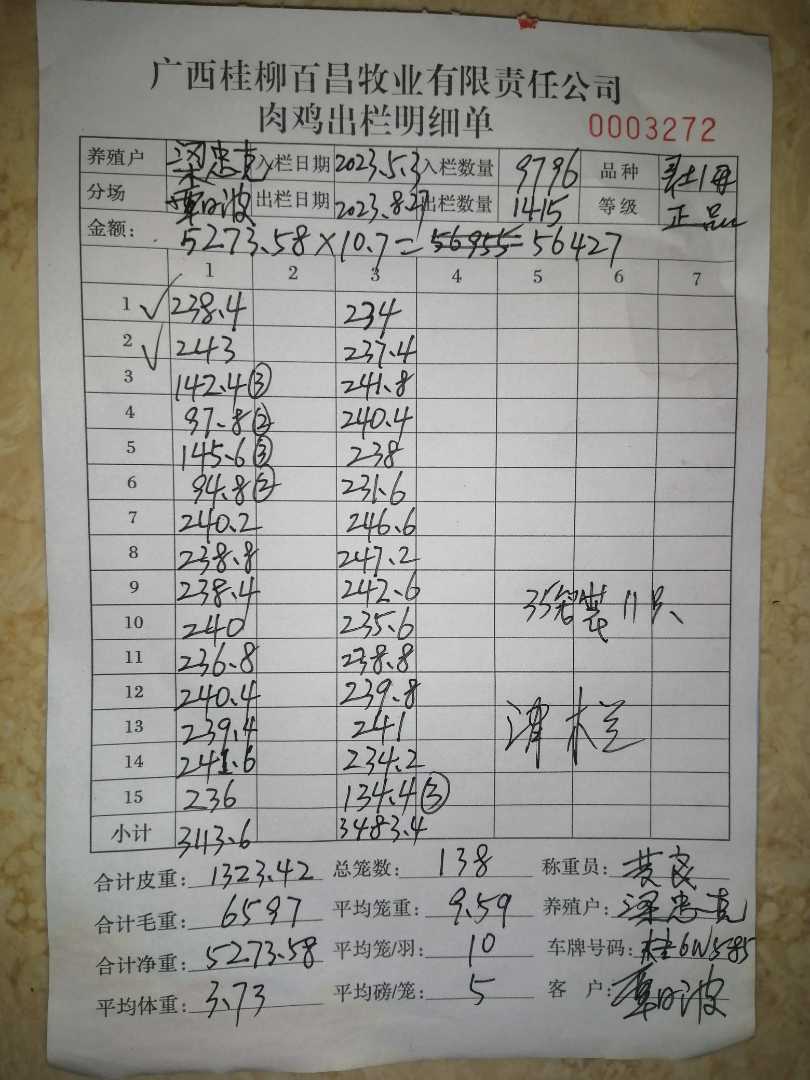 广西桂柳百昌牧业有限责任公司
肉鸡出栏明细单 0003272
养殖户 梁忠克 入栏日期 2023.5.3 入栏数量 9796 品种
分场 覃日波 出栏日期 2023.8.27 出栏数量 1415 等级 正品
金额: 5273.58×10.7= 56955 56427
1 2 3 4 5 6 7
1 ✓ 238.4 234
2 ✓ 243 237.4
3 142.4③ 241.8
4 97.8② 240.4
5 145.6③ 238
6 94.8② 231.6
7 240.2 246.6
8 238.8 247.2
9 238.4 242.6
10 240 235.6 35笼装11只
11 236.8 238.8
12 240.4 239.8
13 239.4 241 清栏
14 241.6 234.2
15 236 134.4③
小计 3113.6 3483.4
合计皮重: 1323.42 总笼数: 138 称重员:
合计毛重: 6597 平均笼重: 9.59 养殖户: 梁忠克
合计净重: 5273.58 平均笼/羽: 10 车牌号码: 桂6W585
平均体重: 3.73 平均磅/笼: 5 客户: 覃日波